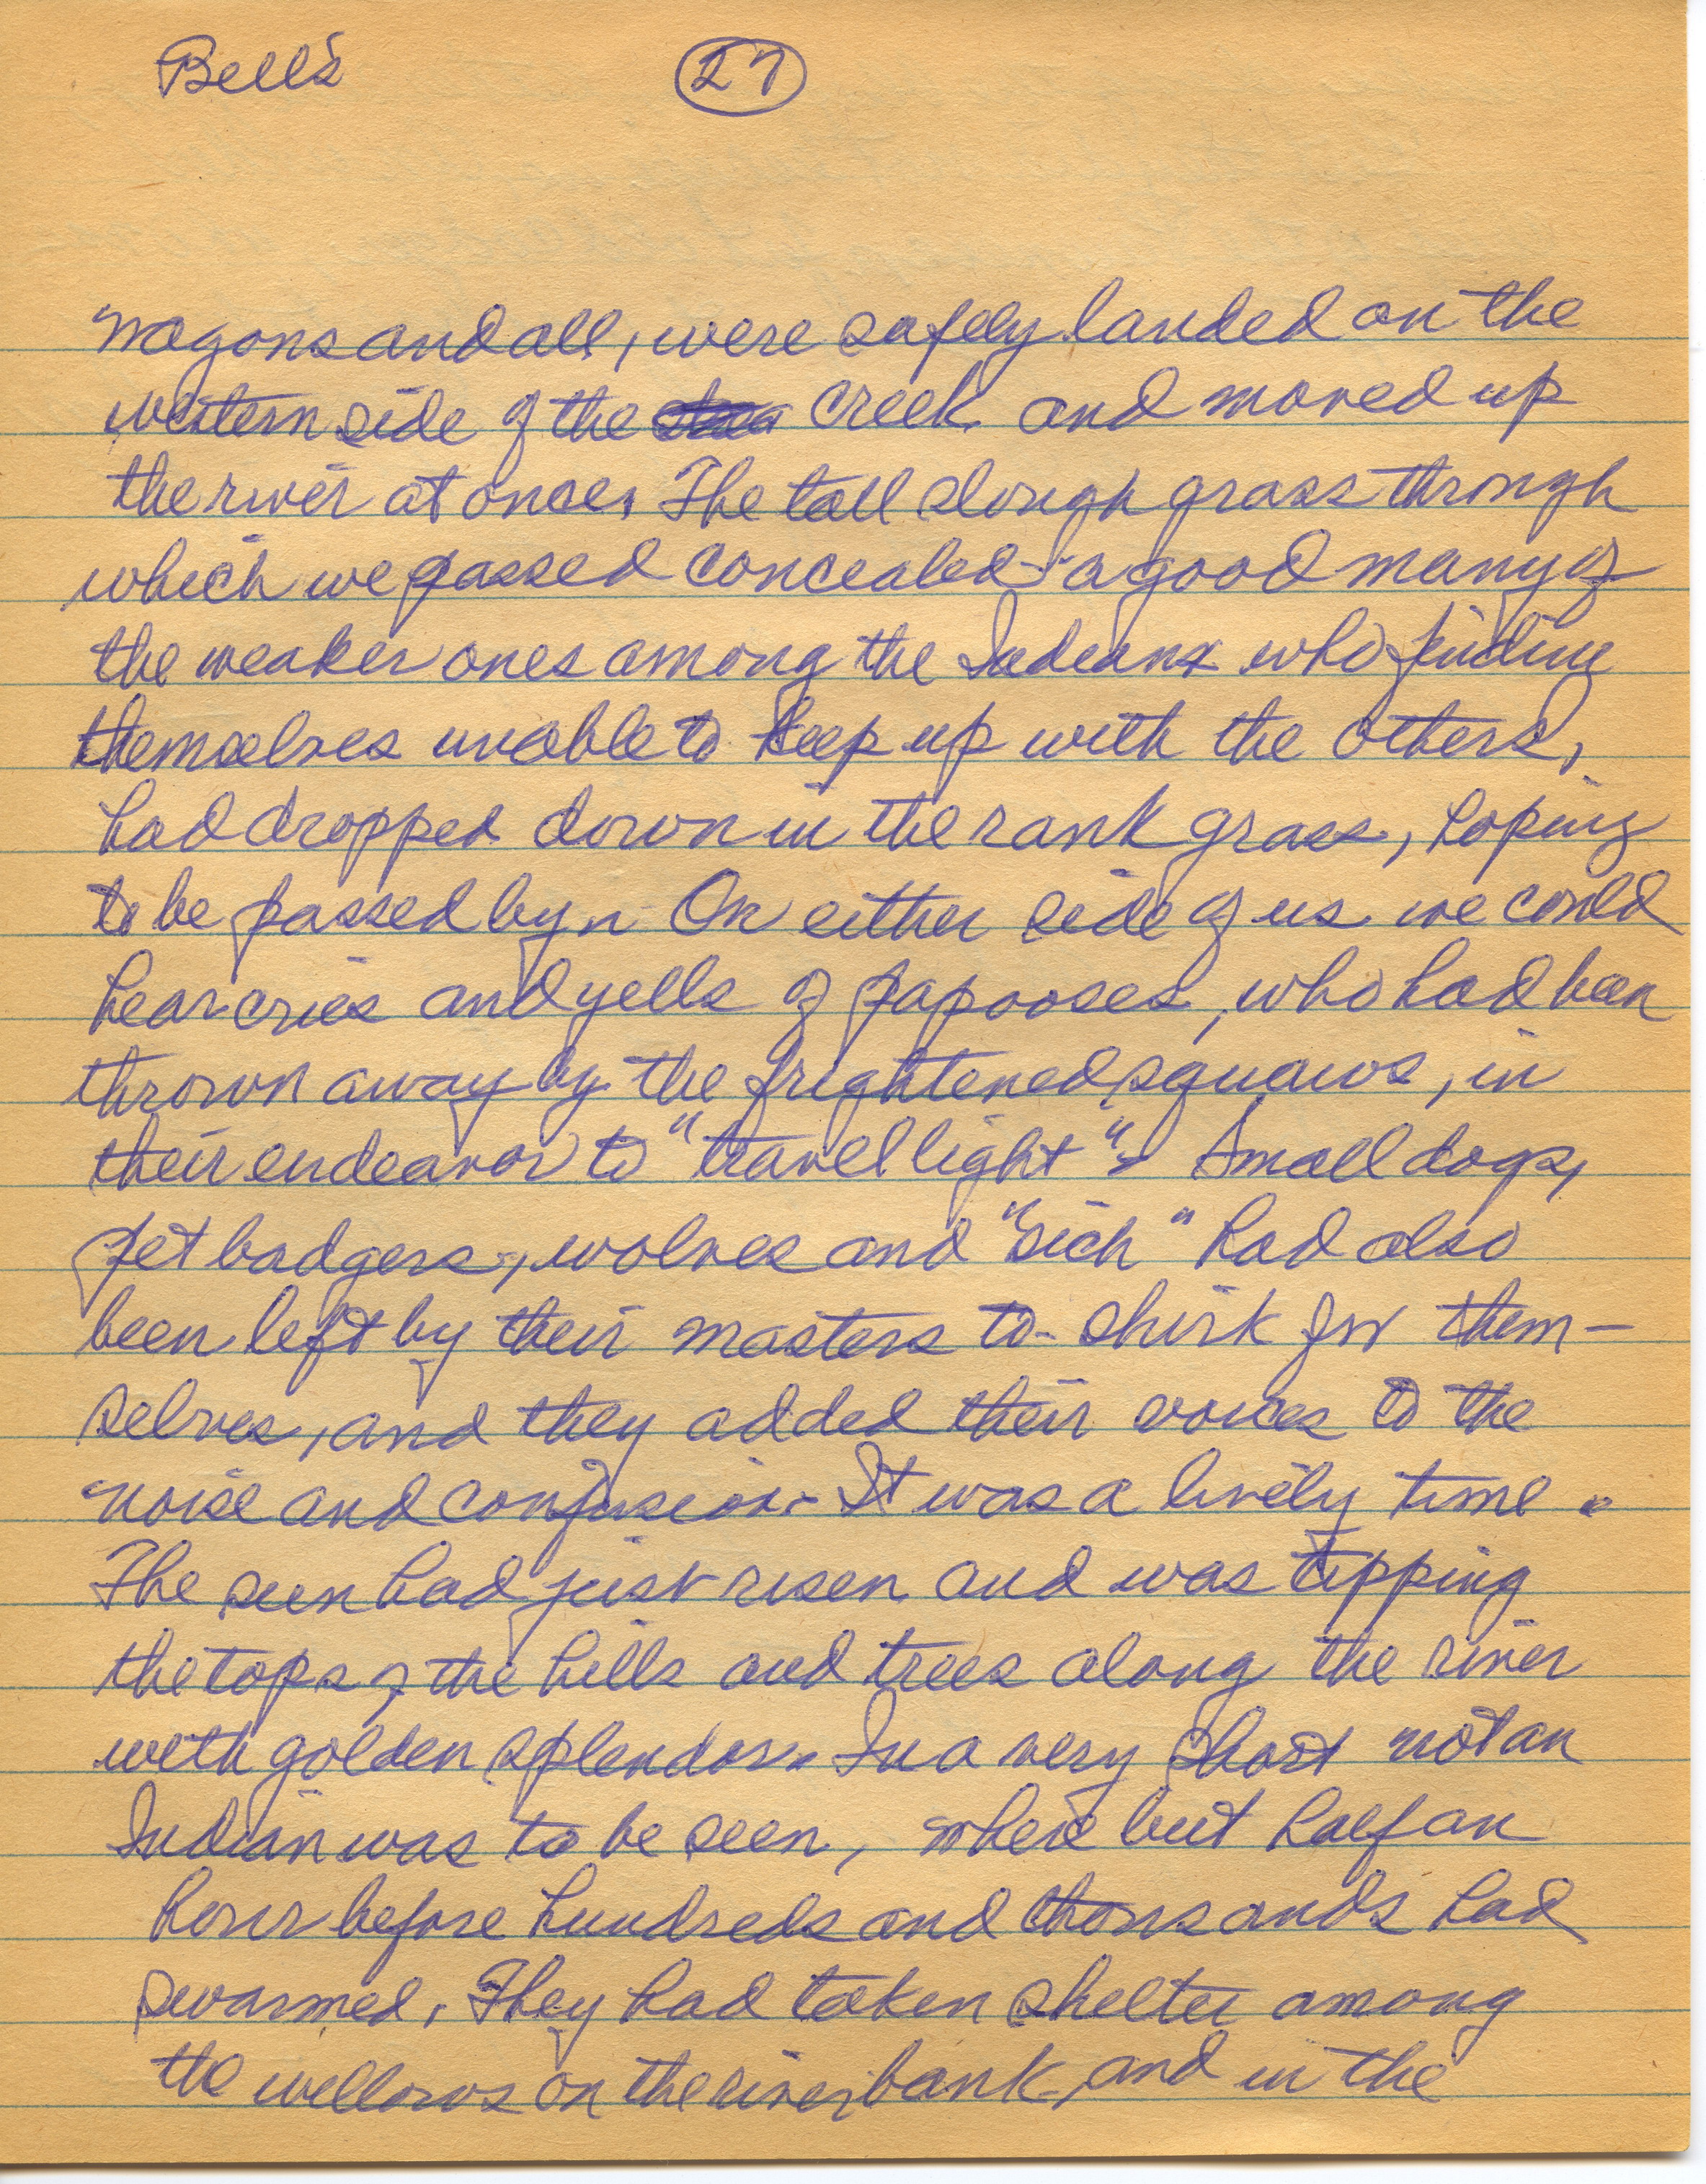 Bell's 27
wagons and all, were safely landed on the
western side of the creek and moved up
the river at once. The tall slough grass through
which we passed concealed a good many of
the weaker ones among the Indians who finding
themselves unable to keep up with the others,
had dropped down in the rank grass, hoping
to be passed by. On either side of us we could
hear cries and yells of papooses, who had been
thrown away by the frightened squaws, in
their endeavor to "travel light". Small dogs,
pet badgers, wolves and "sich" had also
been left by their masters to shirk for them-
selves, and they added their voices to the
noise and confusion. It was a lively time.
The sun had just risen and was tipping
the tops of the hills and trees along the river
with golden splendor. In a very short not an
Indian was to be seen, where but half an
hour before hundreds and thousands had
swarmed. They had taken shelter among
the willows on the river bank, and in the